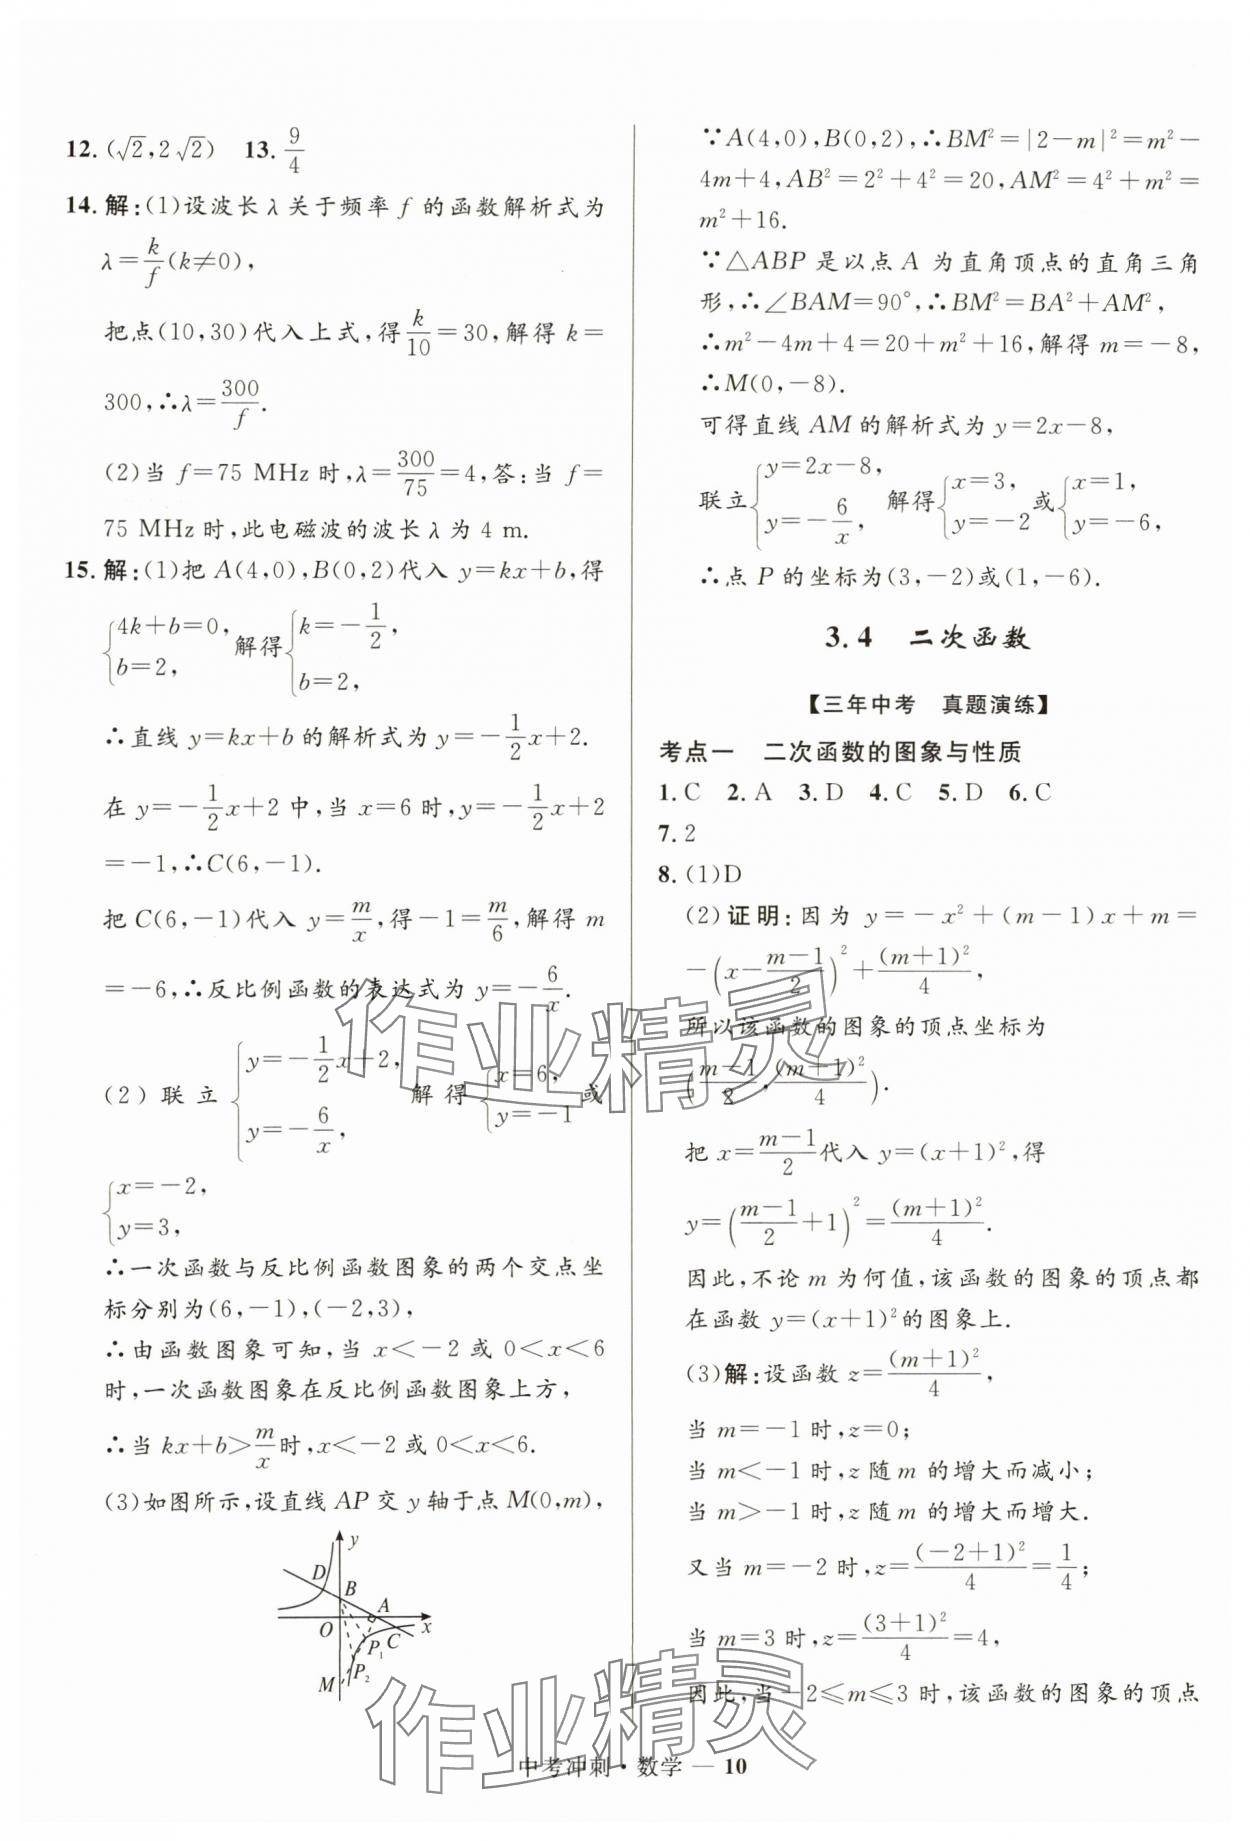 12.(√2,2√2)　13.9/4
14.解:(1)设波长λ关于频率 f 的函数解析式为
λ=k/f(k≠0),
把点(10,30)代入上式,得k/10=30,解得k=
300,∴λ=300/f.
(2)当 f=75 MHz时,λ=300/75=4,答:当 f=
75 MHz时,此电磁波的波长λ为 4 m.
15.解:(1)把A(4,0),B(0,2)代入 y=kx+b,得
{4k+b=0, b=2, 解得{k=-1/2, b=2,
∴直线 y=kx+b的解析式为 y=-1/2x+2.
在 y=-1/2x+2中,当 x=6时,y=-1/2x+2
=-1,∴C(6,-1).
把C(6,-1)代入 y=m/x,得-1=m/6,解得 m
=-6,∴反比例函数的表达式为 y=-6/x.
(2) 联立{y=-1/2x+2, y=-6/x, 解得{x=6, y=-1 或
{x=-2, y=3,
∴一次函数与反比例函数图象的两个交点坐
标分别为(6,-1),(-2,3),
∴由函数图象可知,当 x<-2或 0<x<6
时,一次函数图象在反比例函数图象上方,
∴当 kx+b>m/x时,x<-2或0<x<6.
(3)如图所示,设直线 AP交y轴于点M(0,m),
y
D
B
A
O
C
x
P1
P2
M
∵A(4,0),B(0,2),∴BM²=|2-m|²=m²-
4m+4,AB²=2²+4²=20,AM²=4²+m²=
m²+16.
∵△ABP 是以点 A 为直角顶点的直角三角
形,∴∠BAM=90°,∴BM²=BA²+AM²,
∴m²-4m+4=20+m²+16,解得 m=-8,
∴M(0,-8).
可得直线 AM的解析式为 y=2x-8,
联立{y=2x-8, y=-6/x, 解得{x=3, y=-2 或{x=1, y=-6,
∴点 P的坐标为(3,-2)或(1,-6).
3.4　二次函数
【三年中考　真题演练】
考点一　二次函数的图象与性质
1.C　2.A　3.D　4.C　5.D　6.C
7.2
8.(1)D
(2)证明:因为 y=-x²+(m-1)x+m=
-(x-(m-1)/2)²+(m+1)²/4,
所以该函数的图象的顶点坐标为
((m-1)/2,(m+1)²/4).
把 x=(m-1)/2代入 y=(x+1)²,得
y=((m-1)/2+1)²=(m+1)²/4.
因此,不论m为何值,该函数的图象的顶点都
在函数 y=(x+1)²的图象上.
(3)解:设函数 z=(m+1)²/4,
当 m=-1时,z=0;
当 m<-1时,z随m的增大而减小;
当 m>-1时,z随m的增大而增大.
又当 m=-2时,z=(-2+1)²/4=1/4;
当 m=3时,z=(3+1)²/4=4,
因此,当-2≤m≤3时,该函数的图象的顶点
作业精灵
作业精灵
中考冲刺·数学 — 10